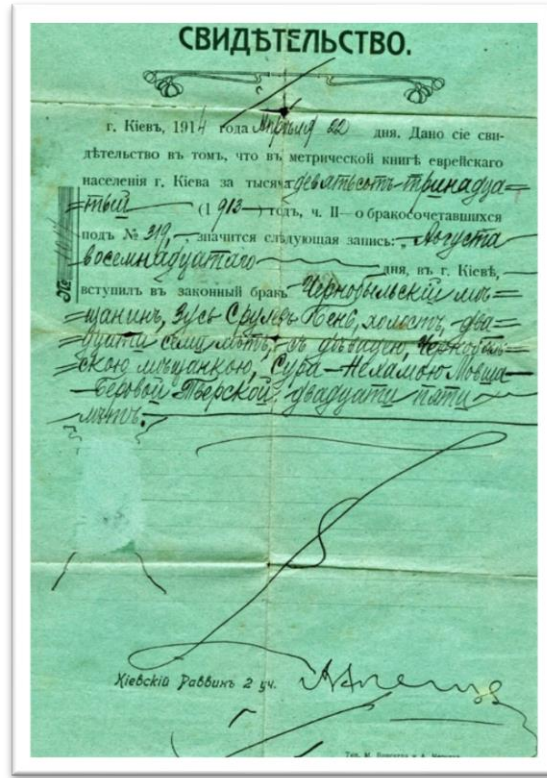 СВИДѢТЕЛЬСТВО.
г. Кіевъ, 1914 года Апрѣля 22 дня. Дано сіе сви-
дѣтельство въ томъ, что въ метрической книгѣ еврейскаго
населенія г. Кіева за тысяча девятьсотъ тринадца=
=тый (1913) годъ, ч. II—о бракосочетавшихся
подъ № 319, значится слѣдующая запись: „Августа
восемнадцатаго дня, въ г. Кіевѣ,
вступилъ въ законный бракъ Чернобыльскій мѣ=
=щанинъ, Зусь Сруль Бень, холостъ, два=
=дцати семи лѣтъ, съ дѣвицею, Чернобыль=
=скою мѣщанкою, Сура-Нехамою Мовша-
Беровой Тверской двадцати пяти
лѣтъ.
№
Кіевскій Раввинъ 2 уч.
Тип. М.